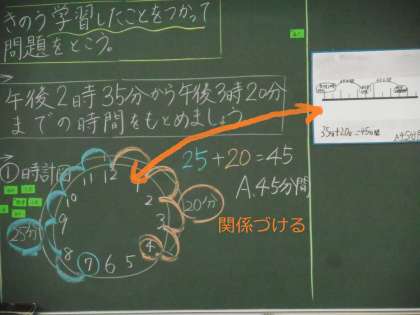 きのう学習したことをつかって
問題をとこう。
午後2時35分から午後3時20分
までの時間をもとめましょう
①時計図
25+20=45
A.45分間
12
11
1
10
2
9
3
8
4
7
6
5
25分
20分
関係づける
35分+20分=45分間
A45分間